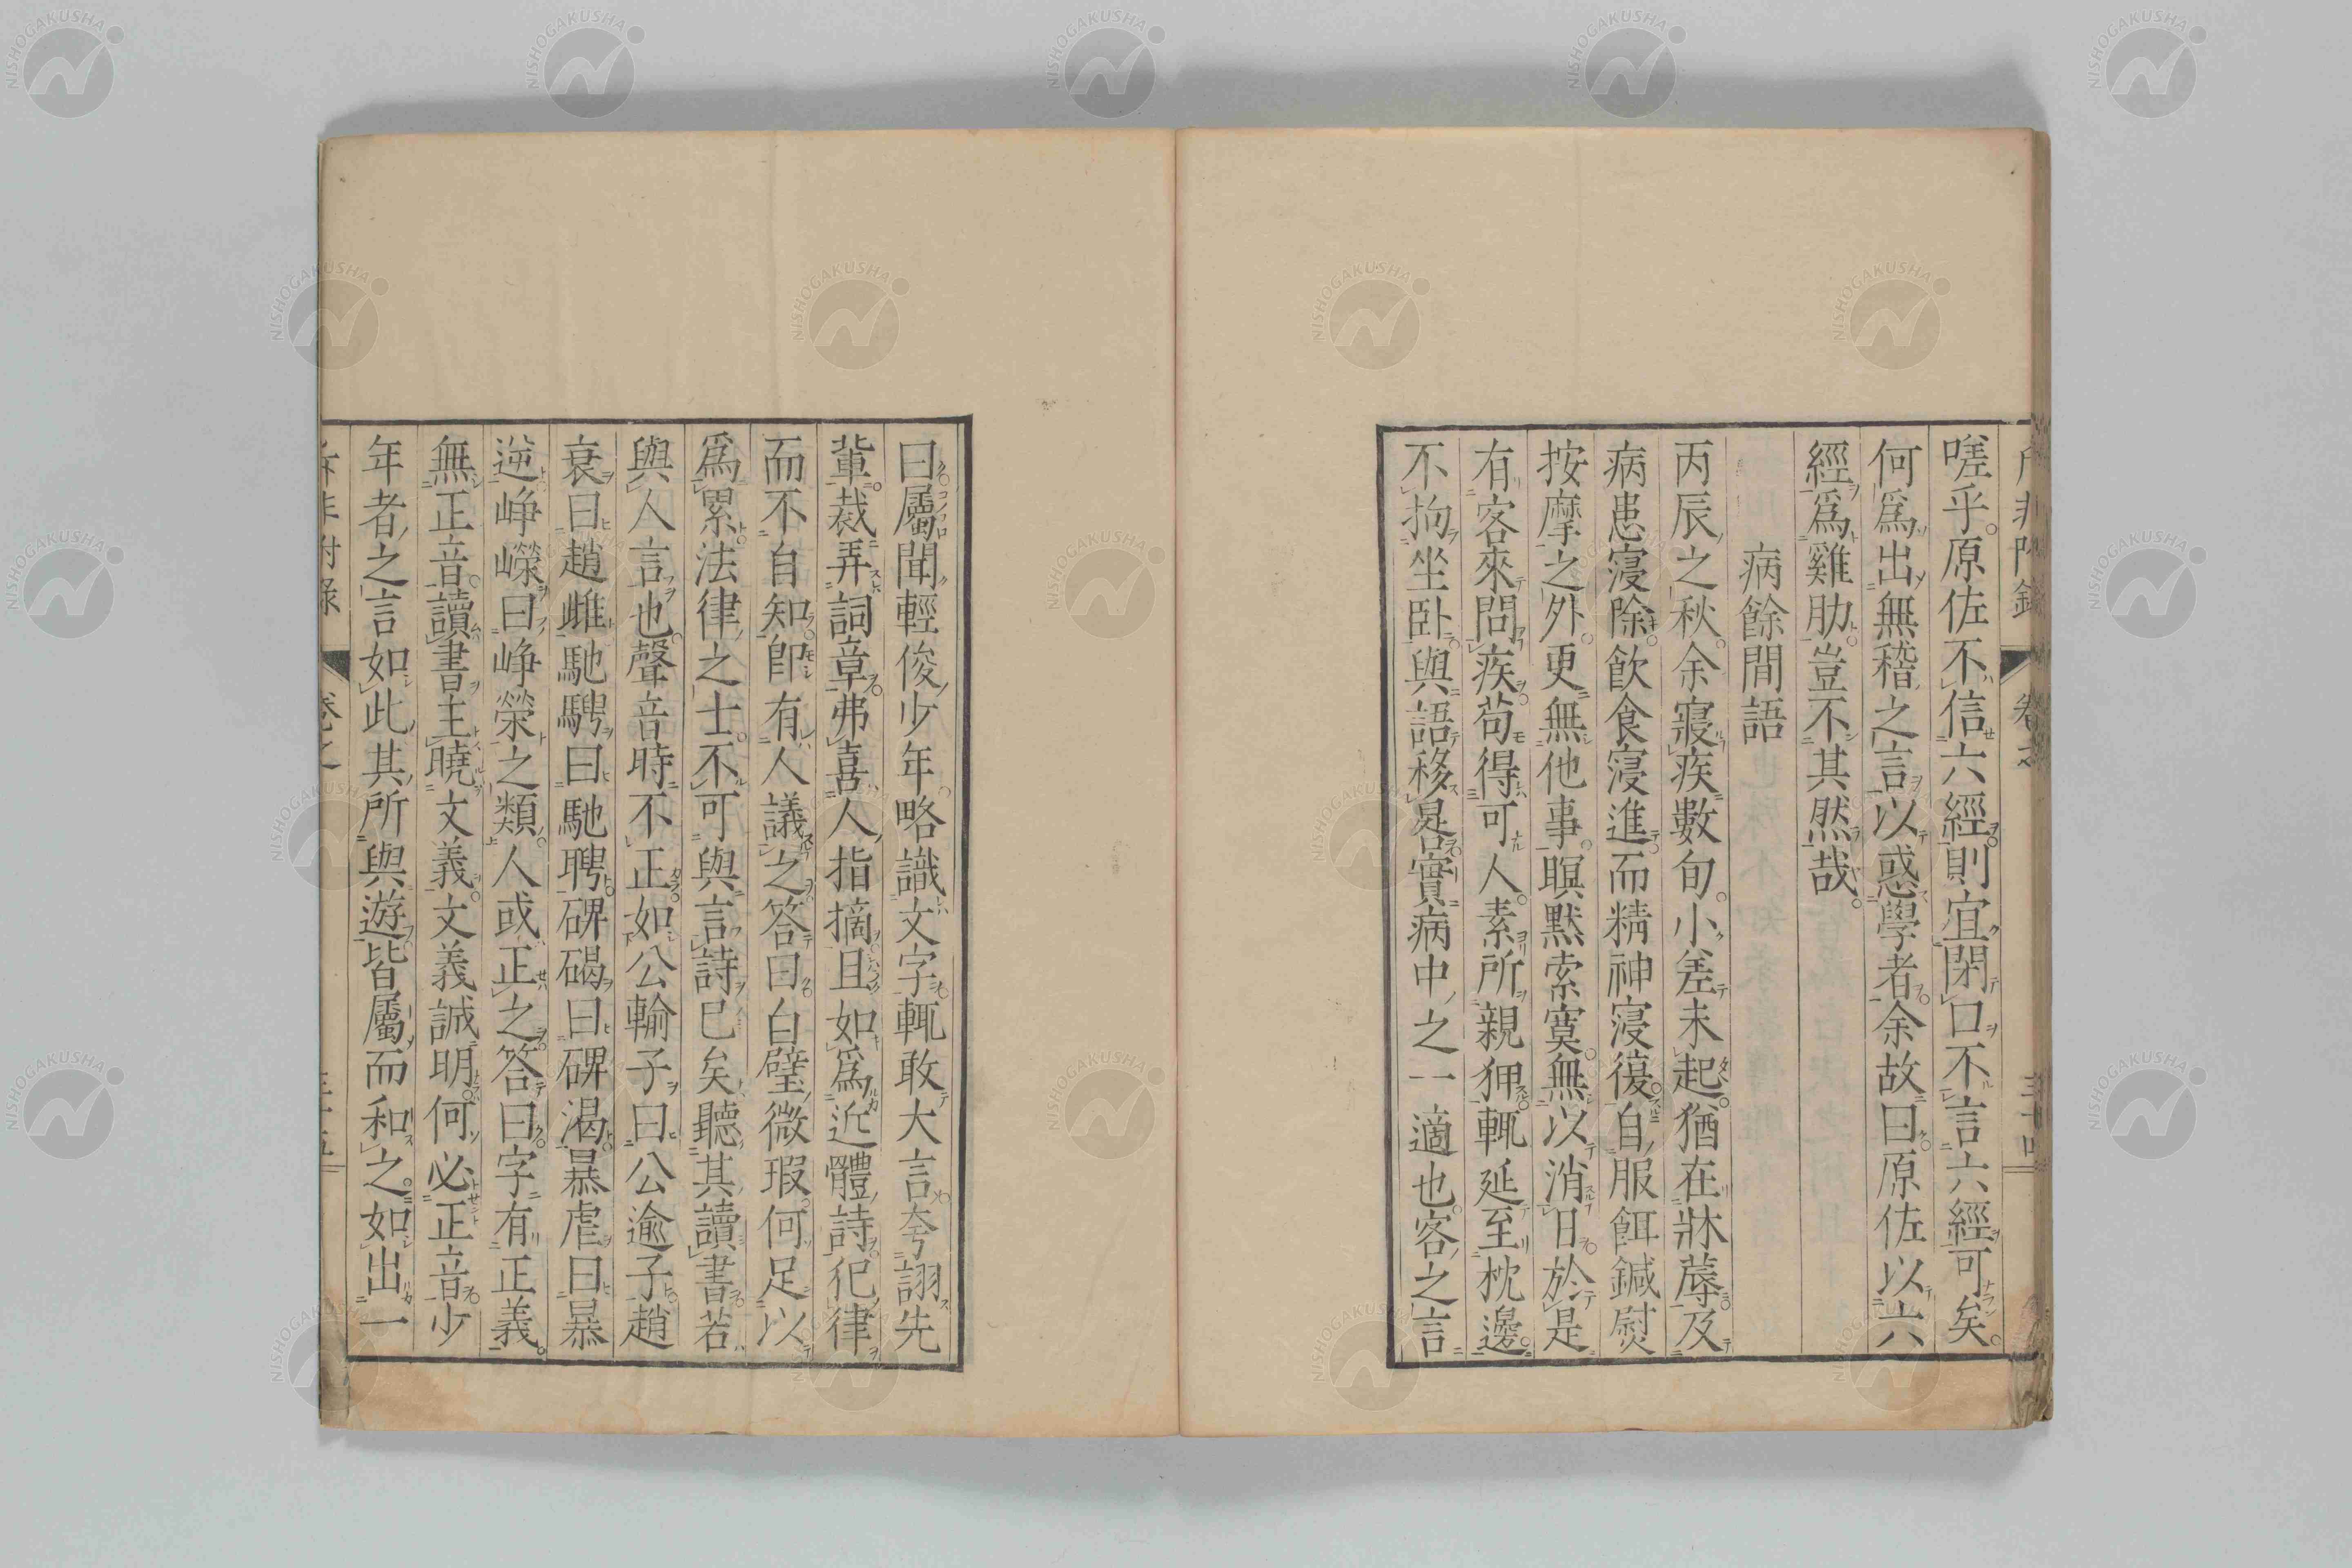 嗟乎。原佐不信六經則宜閉口不言六經可矣。
何爲出無稽之言以惑學者余故曰原佐以六
經爲雞肋豈不其然哉。
病餘間語
丙辰之秋。余寢疾數旬。小差未起。猶在牀蓐及
病患寖除。飲食寖進而精神寖復。自服餌鍼熨
按摩之外。更無他事。瞑默索寞。無以消日於是
有客來問疾苟得可人。素所親狎輒延至枕邊。
不拘坐卧與語移晷實病中之一適也。客之言
曰屬聞輕俊少年略識文字輒敢大言夸詡先
輩裁弄詞章弗喜人指摘且如爲近體詩犯律
而不自知卽有人議之答曰白璧微瑕何足以
爲累法律之士。不可與言詩已矣聽其讀書若
與人言也。聲音時不正如公輸子曰公逾子趙
衰曰趙雎馳騁曰馳聘碑碣曰碑渴暴虐曰暴
逆崢嶸曰崢榮之類。人或正之答曰字有正義。
無正音。讀書主曉文義。文義誠明。何必正音少
年者之言如此其所與遊。皆屬而和之。如出一